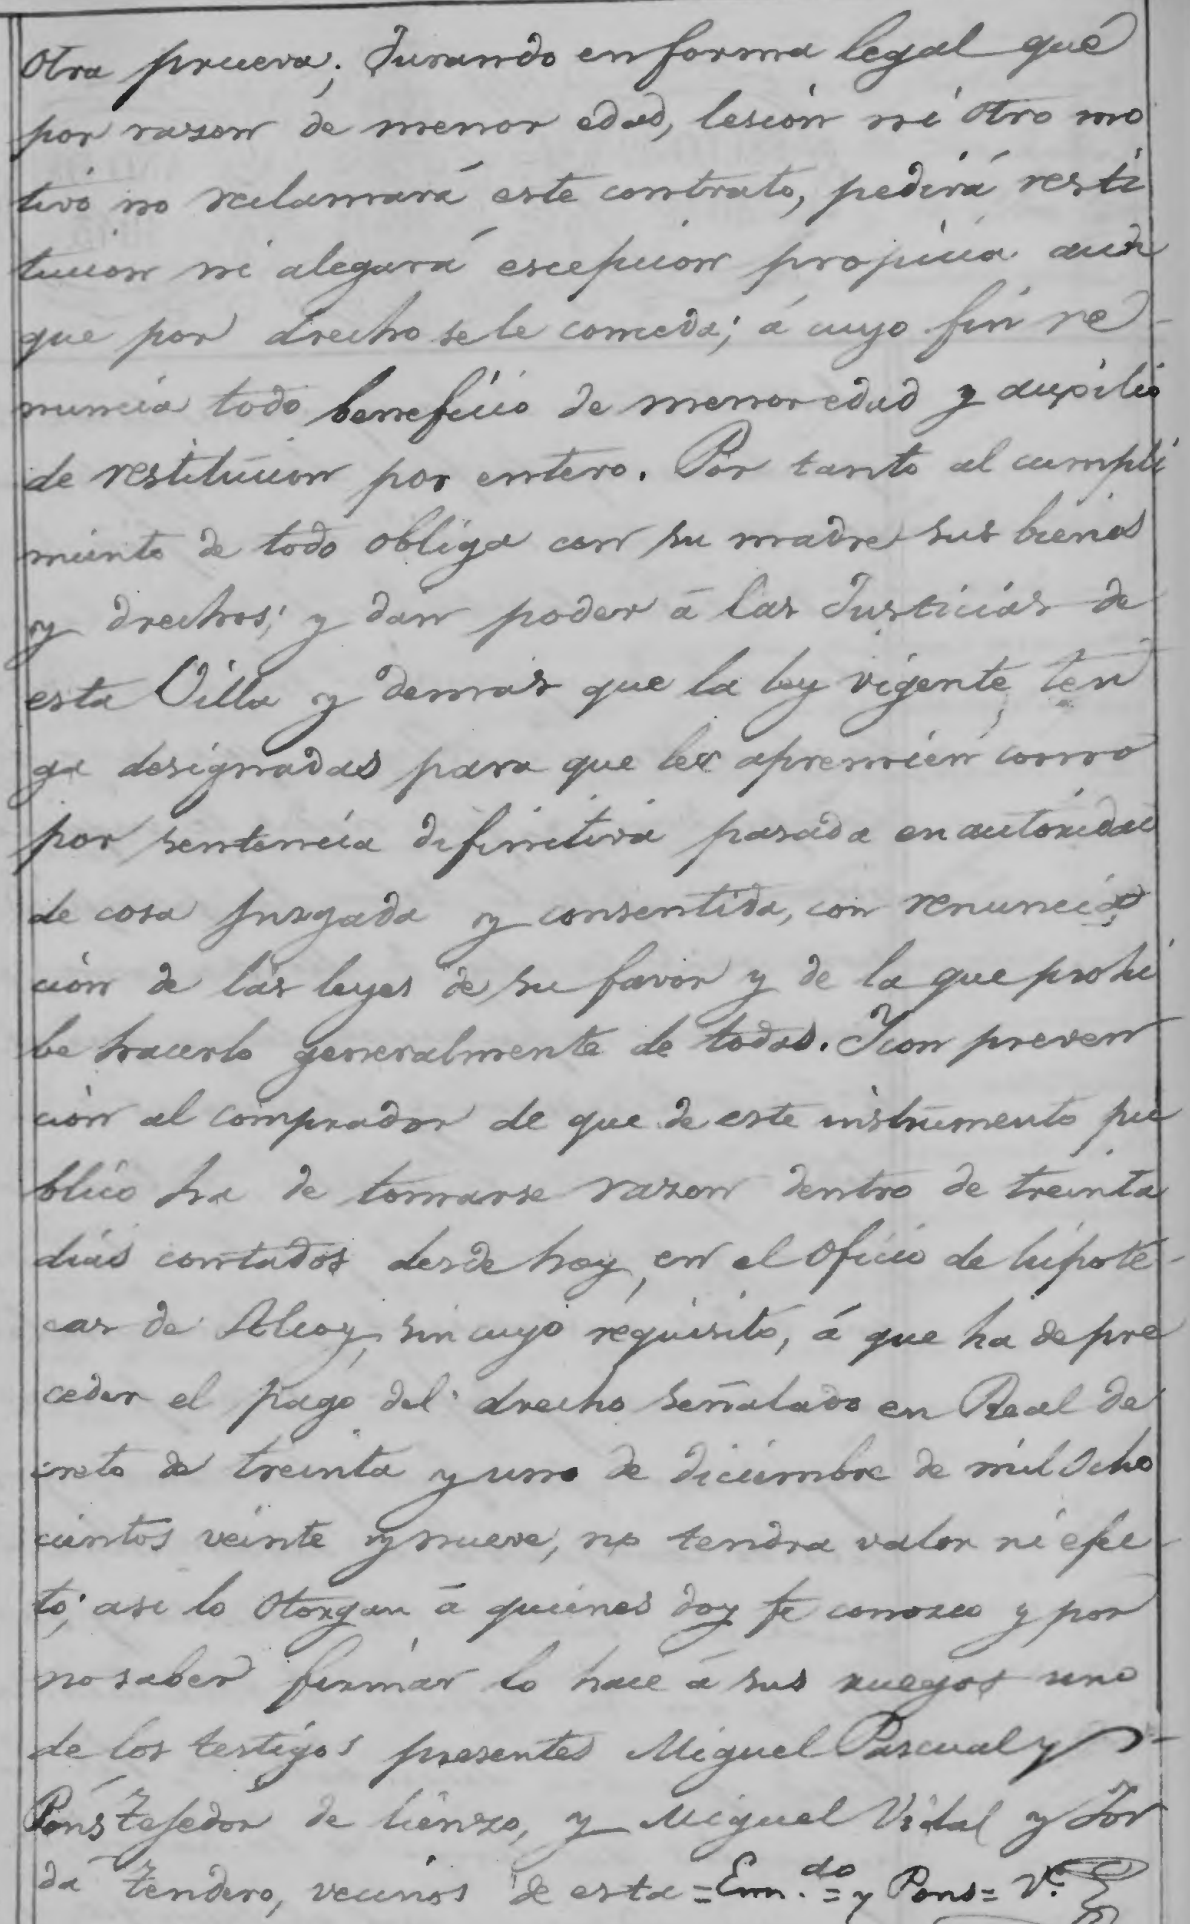 otra prueva; Jurando en forma legal qué
por razon de menor edad, lesion ni otro mo
tivo no reclamará este contrato, pedirá resti
tucion ni alegará escepcion propicia aun
que por drecho se le conceda; á cuyo fin re-
nuncia todo beneficio de menor edad y aucsilio
de restitucion por entero. Por tanto al cumpli
miento de todo obliga con su madre sus bienes
y drechos; y dan poder á las Justicias de
esta Villa y demas que la ley vigente ten
ga designadas para que les apremien como
por sentencia difinitiva pasada en autoridad
de cosa juzgada y consentida, con renuncia
cion de las leyes de su favor y de la que prohi
be hacerlo generalmente de todas. Y con preven
cion al comprador de que de este instrumento pu
blico ha de tomarse razon dentro de treinta
dias contados desde hoy, en el Oficio de hipote-
cas de Alcoy, sin cuyo requisito, á que ha de pre
ceder el pago del drecho señalado en Real de
creto de treinta y uno de diciembre de mil ocho
cientos veinte y nueve, no tendra valor ni efec-
to; asi lo otorgan á quienes doy fe conozco y por
no saber firmar lo hace á sus ruegos uno
de los testigos presentes Miguel Pascual y
Pons Tejedor de lienzo, y Miguel Vidal y Jor
dá Tendero, vecinos de esta = Em.do = y Pons = V.e